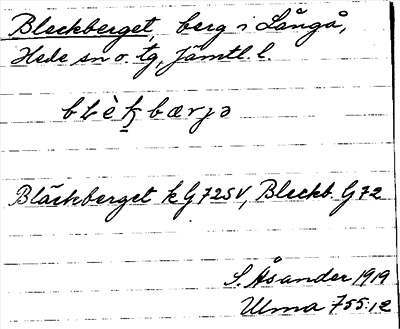 Bleckberget, berg i Långå,
Hede sn o. tg, Jämtl. l.
bLèꞣbærjə
Bläckberget k G 72SV, Bleckb. G 72
S. Åsander 1919
Ulma 755:12